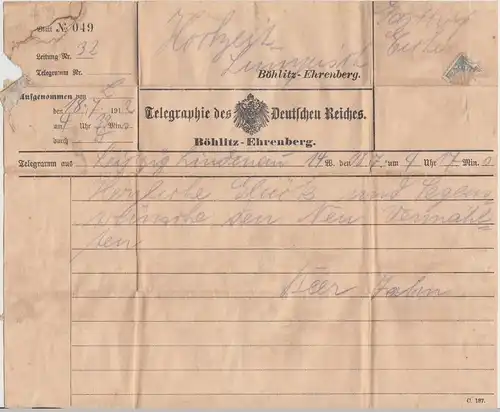 Blatt № 049
Leitung Nr. 32
Telegramm Nr.
Aufgenommen von
den 18. 7. 191
um 9 Uhr Min.
durch
Hochzeit
Böhlitz-Ehrenberg.
Telegraphie des Deutschen Reiches.
Böhlitz-Ehrenberg.
Telegramm aus Leipzig Lindenau 14 W. den um 9 Uhr 17 Min.
Herzliche Glück und Segens
wünsche den Neu Vermähl=
ten
Beer
C. 187.